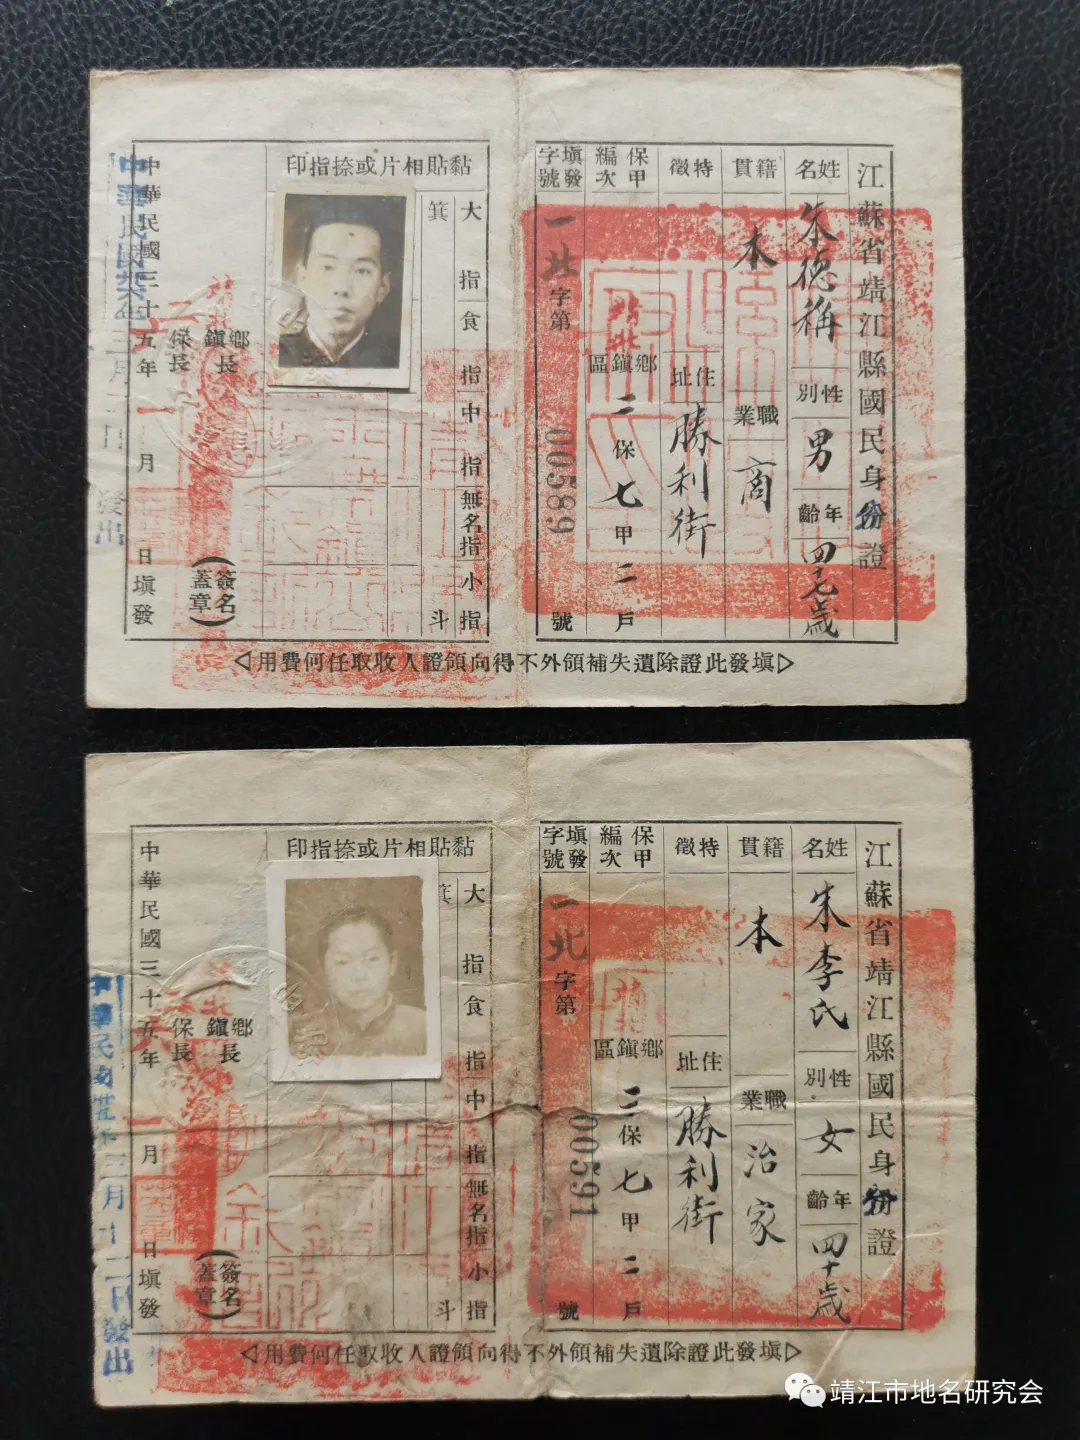 江蘇省靖江縣國民身份證
姓名
朱德稱
性別
男
年齡
四十七歲
籍貫
本
職業
商
特徵
住址
勝利街
保甲編次
靖北
鄉鎮區
二保七甲二戶
填發字號
一北字第00589號
黏貼相片或捺指印
大指食指中指無名指小指
箕
斗
鄉鎮長
保長
(簽名蓋章)
中華民國三十五年一月 日填發
▷填發此證除遺失補領外不得向領證人收取任何費用◁
江蘇省靖江縣國民身份證
姓名
朱李氏
性別
女
年齡
四十歲
籍貫
本
職業
治家
特徵
住址
勝利街
保甲編次
鄉鎮區
二保七甲二戶
填發字號
一北字第00591號
黏貼相片或捺指印
大指食指中指無名指小指
箕
斗
鄉鎮長
保長
(簽名蓋章)
中華民國三十五年一月 日填發
▷填發此證除遺失補領外不得向領證人收取任何費用◁
靖江市地名研究会